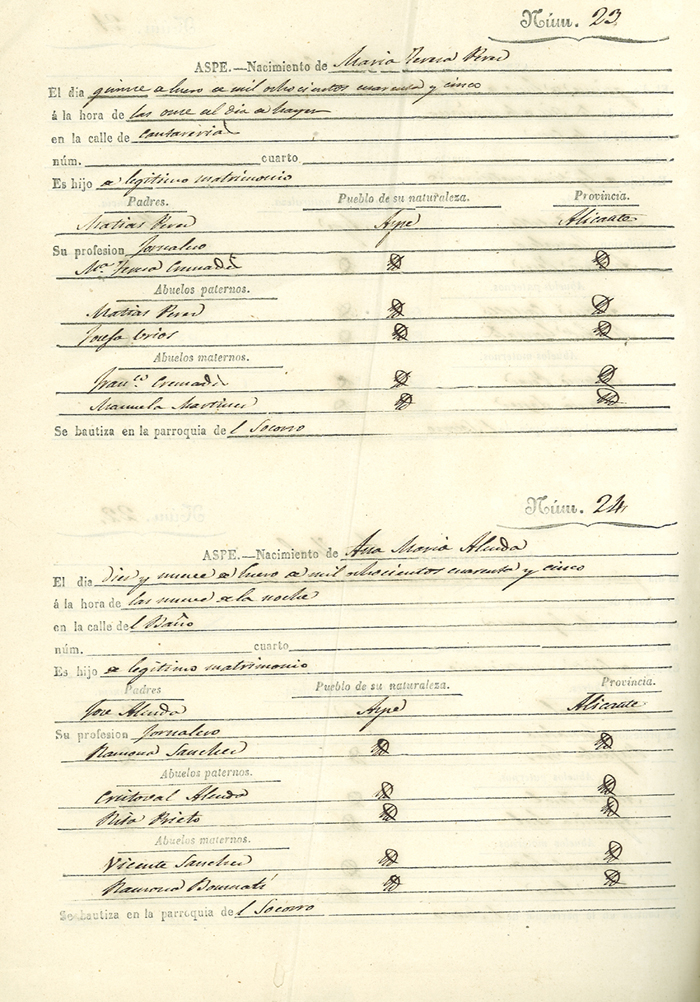 Núm. 23
ASPE.—Nacimiento de Maria Teresa Perez
El dia quince de Enero de mil ochocientos cuarenta y cinco
á la hora de las once del dia de hayer
en la calle de
núm. cuarto
Es hijo de legitimo matrimonio
Padres. Pueblo de su naturaleza. Provincia.
Matias Perez Aspe Alicante
Su profesion Jornalero
Mª Teresa Cremades
Abuelos paternos.
Matias Perez
Josefa
Abuelos maternos.
Franco. Cremades
Manuela Martinez
Se bautiza en la parroquia del Socorro
Núm. 24
ASPE.—Nacimiento de Ana Maria
El dia diez y nueve de Enero de mil ochocientos cuarenta y cinco
á la hora de las nueve de la noche
en la calle del Baño
núm. cuarto
Es hijo de legitimo matrimonio
Padres Pueblo de su naturaleza. Provincia.
Jose Aspe Alicante
Su profesion Jornalero
Ramona Sanchez
Abuelos paternos.
Cristoval
Rita Prieto
Abuelos maternos.
Vicente Sanchez
Ramona
Se bautiza en la parroquia del Socorro